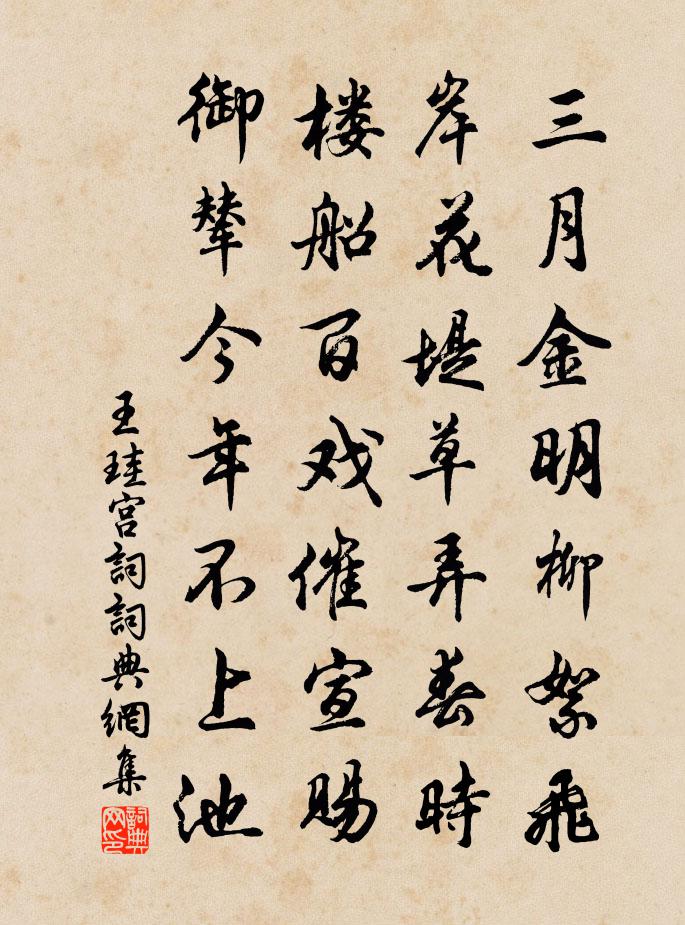 三月金明柳絮飛
岸花堤草弄春時
楼船百戏催宣賜
御輦今年不上池
王珪宫詞詞典網集
詞典网印